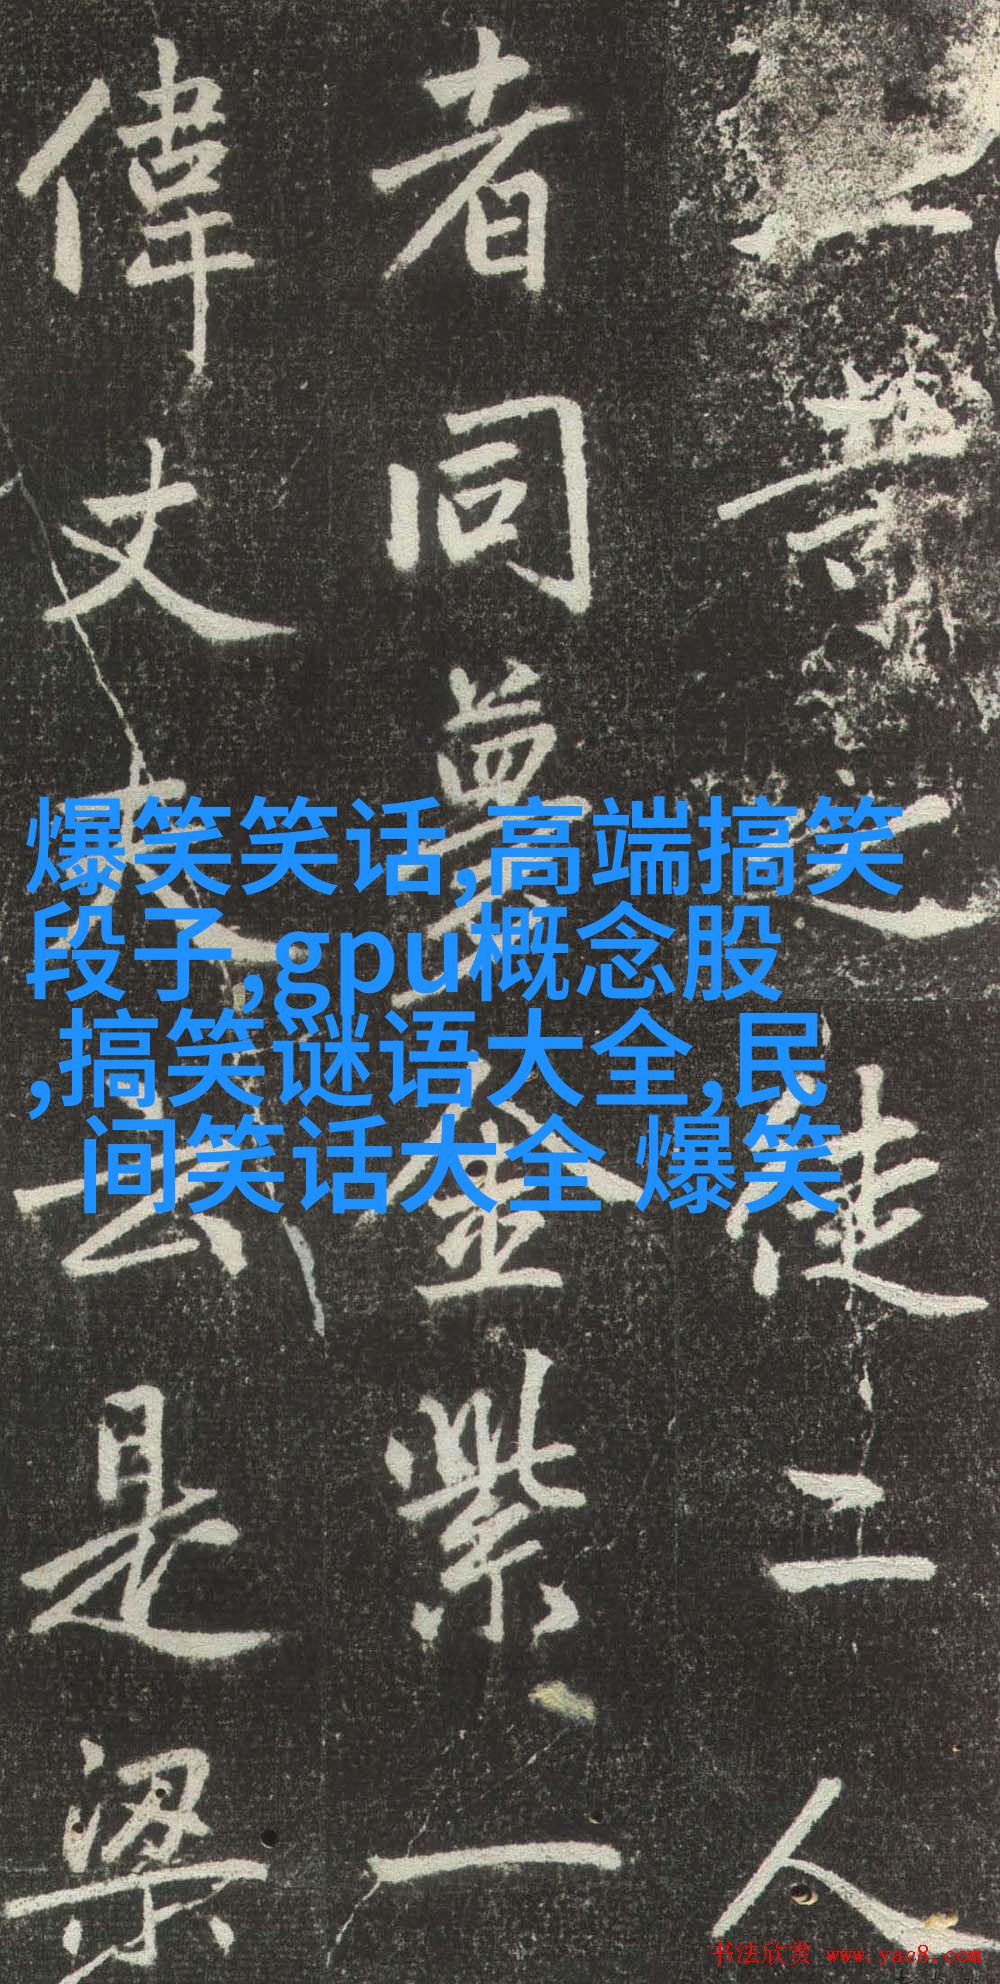 之徒二人
者同金紫一
偉丈夫去是梁
爆笑笑话,高端搞笑
段子,gpu概念股
,搞笑谜语大全,民
间笑话大全 爆笑
书法欣赏 www.yac8.com